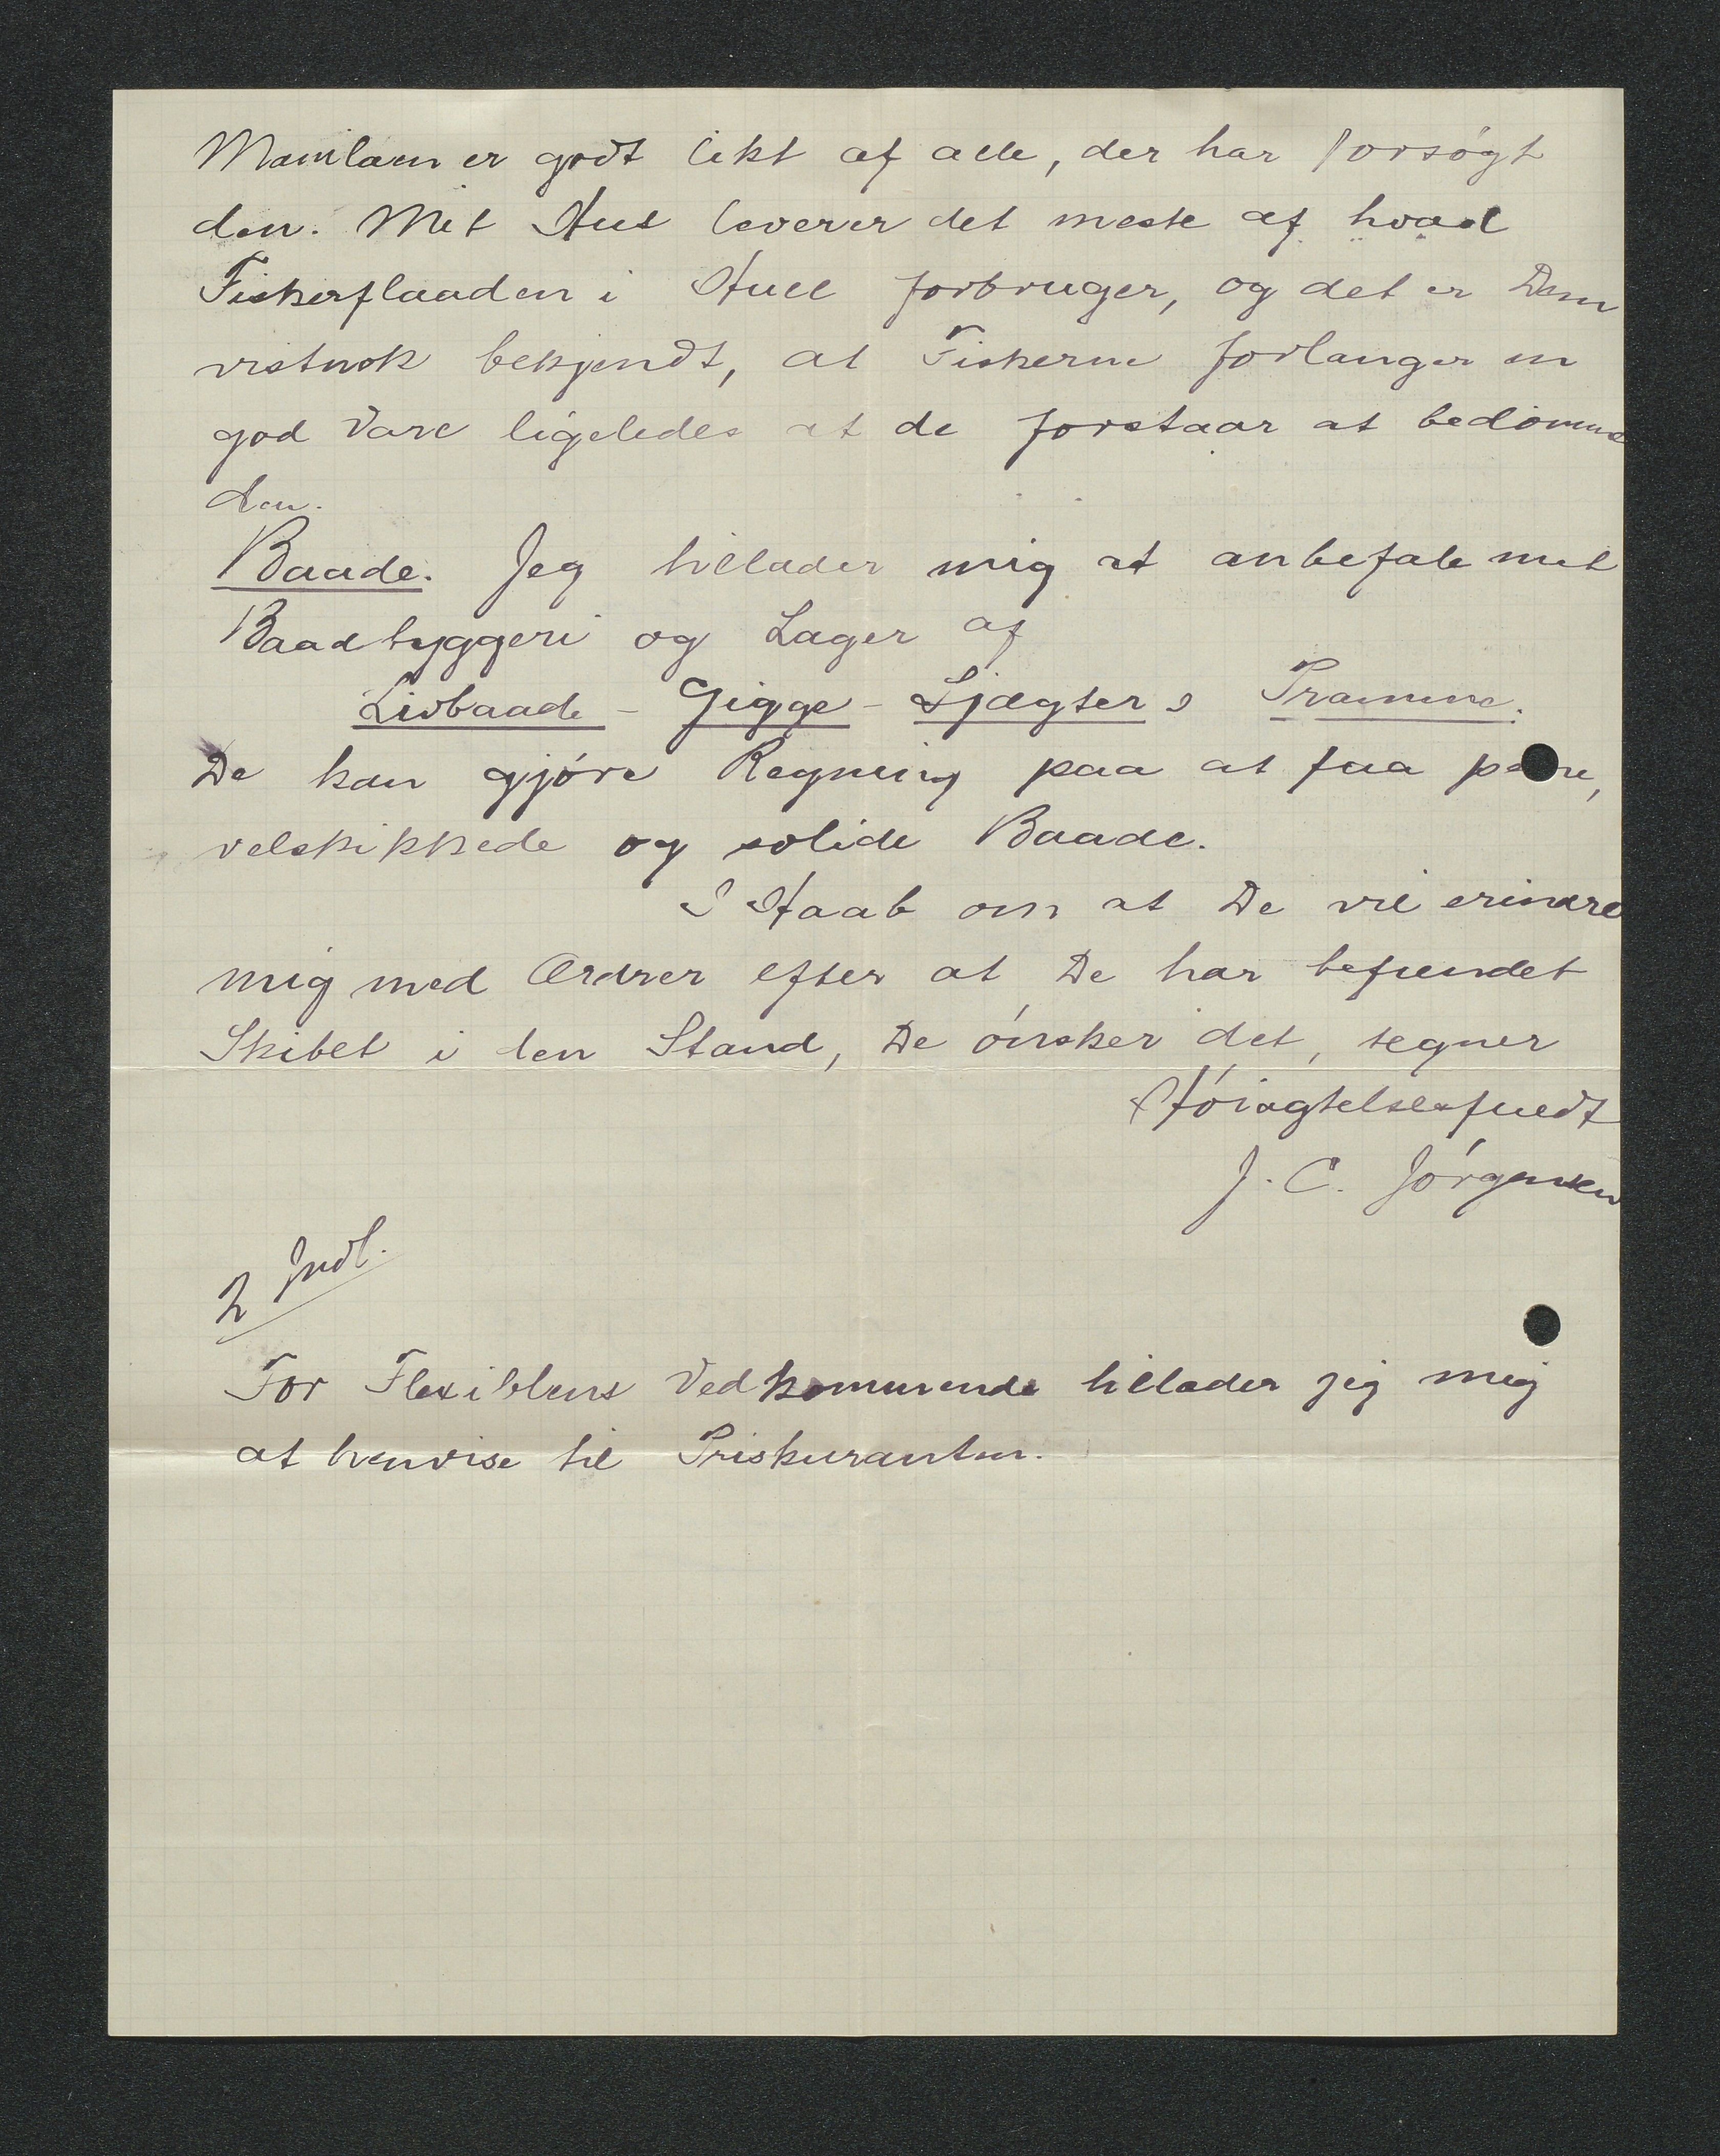 Manilaen er godt likt af alle, der har forsøgt
den. Mit Hus leverer det meste af hvad
Fiskerflaaden i Hull forbruger, og det er Dem
vistnok bekjendt, at Fiskerne forlanger en
god Vare ligeledes at de forstaar at bedømme
den.
Baade. Jeg tillader mig at anbefale mit
Baadbyggeri og Lager af
Livbaade - Gigge - Sjægter & Pramme.
De kan gjøre Regning paa at faa pene,
velskikkede og solide Baade.
I Haab om at De vil erindre
mig med Ordrer efter at De har befundet
Skibet i den Stand, De ønsker det, tegner
Høiagtelsesfuldt
J. C. Jørgensen
2 Indl.
For Flexiblens Vedkommende tillader jeg mig
at henvise til Priskuranten.